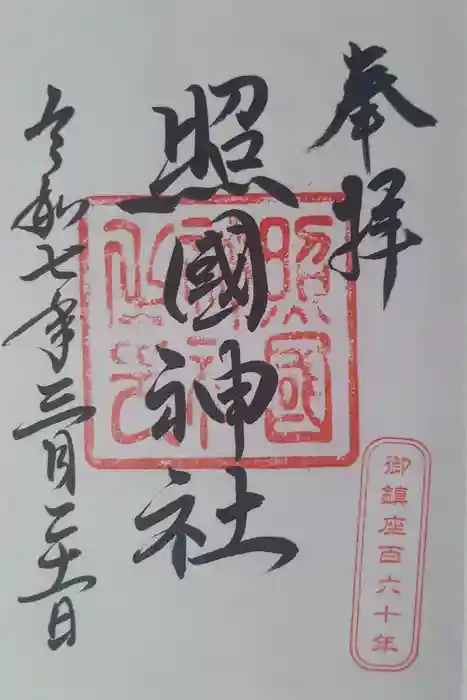 奉拝
照國神社
令和七年三月二十一日
照国
御鎮座百六十年